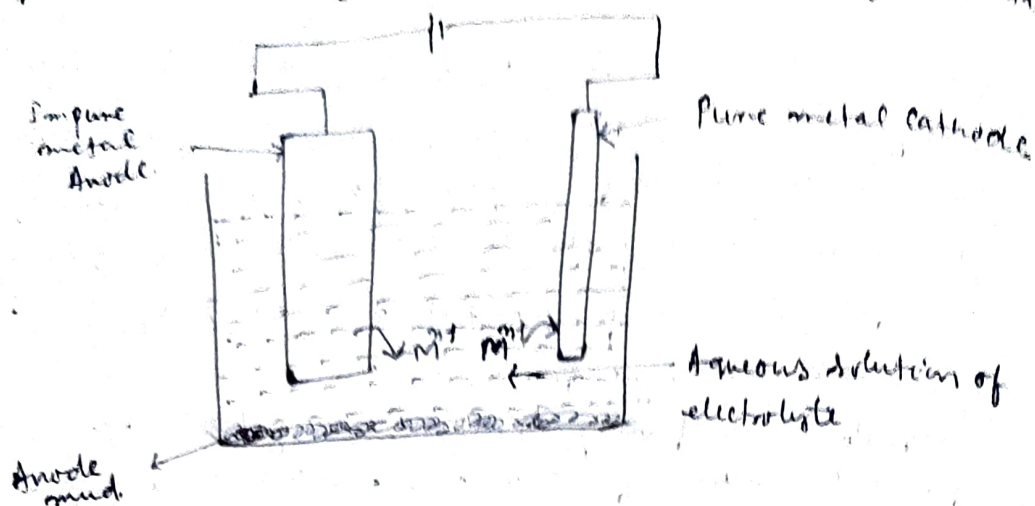 Impure
metal
Anode.
Pure metal Cathode.
Mⁿ⁺ Mⁿ⁺
Aqueous solution of
electrolyte
Anode
mud.